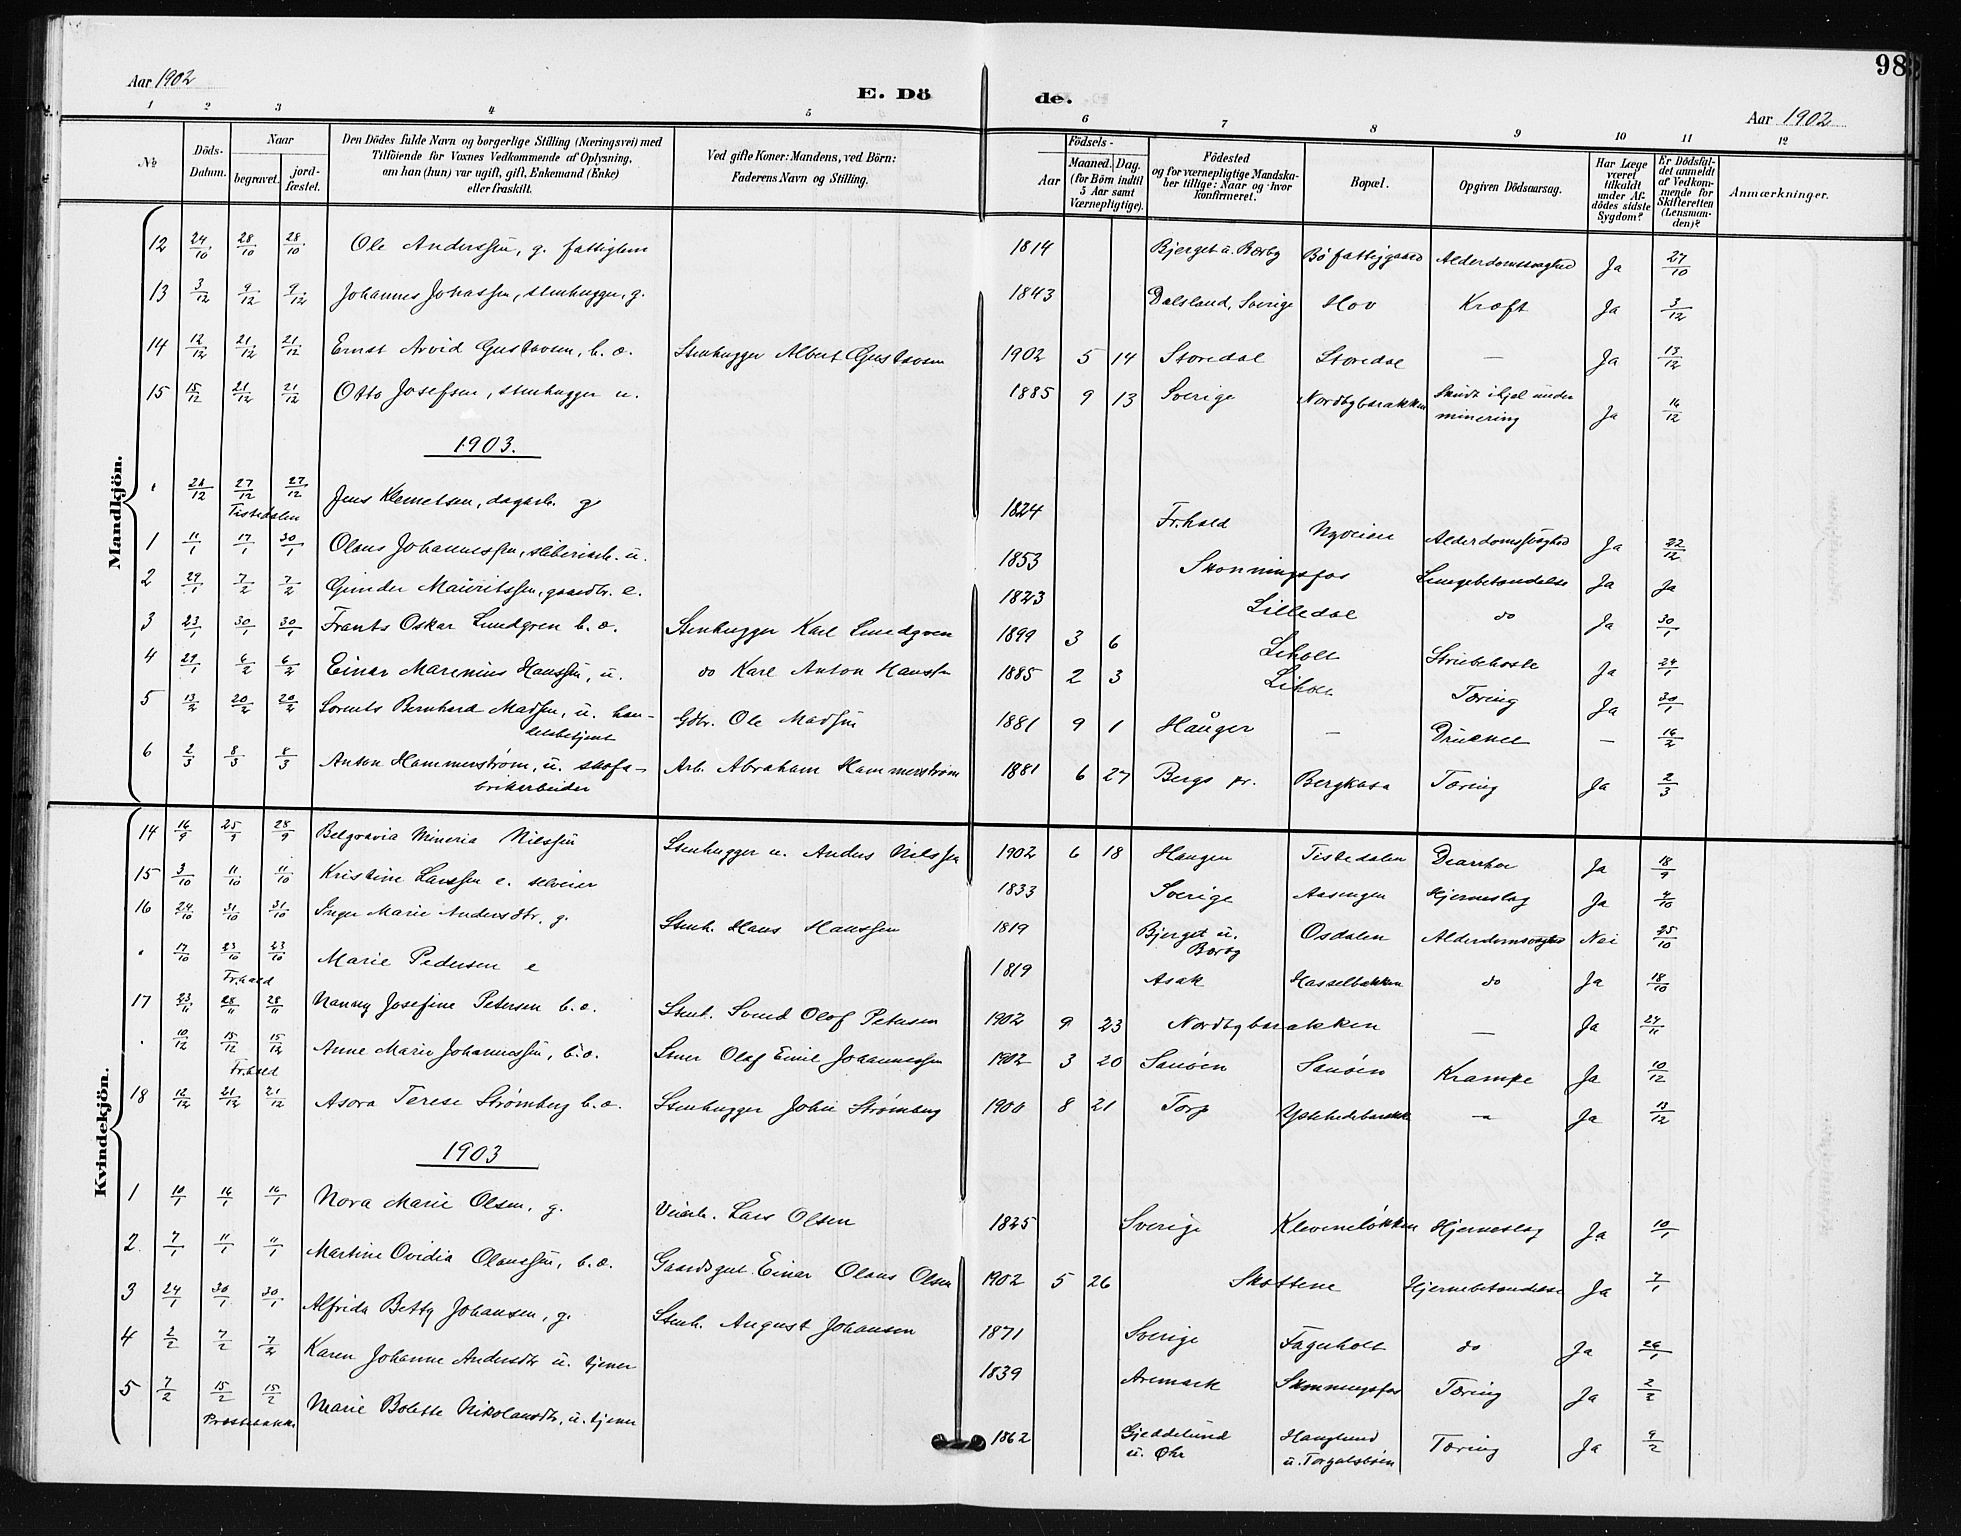 98
Aar 1902
E. Dö de.
Aar 1902
1 2 3 4 5 6 7 8 9 10 11 12
No
Döds-Datum.
Naar begravet. jordfæstet.
Den Dödes fulde Navn og borgerlige Stilling (Næringsvei) med Tilföiende for Voxnes Vedkommende af Oplysning, om han (hun) var ugift, gift, Enkemand (Enke) eller fraskilt.
Ved gifte Koner: Mandens, ved Börn: Faderens Navn og Stilling.
Födsels-
Aar Maaned. Dag. (for Börn indtil 5 Aar samt Værnepligtige).
Födested og for værnepligtige Mandskaber tillige: Naar og hvor konfirmeret.
Bopæl.
Opgiven Dödsaarsag.
Har Læge været tilkaldt under Afdödes sidste Sygdom?
Er Dödsfaldet anmeldt af Vedkommende for Skifteretten (Lensmanden)?
Anmærkninger.
Mandkjön.
12 24/10 28/10 28/10 Ole Anderssen, g. fattiglem 1814 Bjerget u. Berby Bö fattiggaard Alderdomssvaghed Ja 27/10
13 3/12 9/12 9/12 Johannes Jonassen, stenhugger, g. 1843 Dalsland, Sverige Hov Kræft Ja 3/12
14 12/12 21/12 21/12 Ernst Arvid Gustavsen, b. æ. Stenhugger Albert Gustavsen 1902 5 14 Storedal Storedal — Ja 13/12
15 15/12 21/12 21/12 Otto Josefsen, stenhugger u. 1885 9 13 Sverige Nordbybarakken Skudt ihjel under minering Ja 16/12
1903.
27/12 27/12 Jens Klemetsen, dagarb. g 1824 Fr.hald Nyveien Alderdomssvaghed Ja 22/12
Tistedalen
1 11/1 17/1 30/1 Olaus Johannessen, sliberiarb. u. 1853 Skonningsfos Lungebetændelse Ja Ja
2 29/1 7/2 7/2 Gunder Mauritssen, gaardbr. e. 1823 Lilledal do Ja 30/1
3 23/1 30/1 30/1 Frants Oskar Lundgren b. æ. Stenhugger Karl Lundgren 1899 3 6 Liholt Strubehoste Ja 24/1
4 29/1 6/2 6/2 Einar Marenius Hanssen, u. do Karl Anton Hanssen 1885 2 3 Liholt Tæring Ja 30/1
5 13/2 20/2 20/2 Lorents Bernhard Madsen, u. handelsbetjent Gdbr. Ole Madsen 1881 9 1 Hauger — Druknet — 16/2
6 2/3 8/3 8/3 Anton Hammerstrøm, u. skofabrikarbeider Arb. Abraham Hammerstrøm 1881 6 27 Bergs pr. Bergkasa Tæring Ja 2/3
Kvindekjön.
14 16/9 25/9 28/9 Belgravia Mineria Nilssen Stenhugger u. Anders Nilssen 1902 6 18 Haugen Tistedalen Diarrhoe Ja 18/9
15 3/10 11/10 11/10 Kristine Larssen e. selveier 1833 Sverige Aasengen Hjerneslag Ja 4/10
16 24/10 31/10 31/10 Inger Marie Andersdtr. g. Stenh. Hans Hanssen 1819 Bjerget u. Berby Osdalen Alderdomssvaghed Nei 25/10
17/10 23/10 23/10 Marie Pedersen e 1819 Asak Hasselbakken do Ja 18/10
Fr.hald
17 23/11 28/11 28/11 Nanny Josefine Petersen b. æ. Stenh. Svend Olof Petersen 1902 9 23 Nordbybarakken — Ja 24/11
10/12 15/12 15/12 Anne Marie Johannessen, b. æ. Olaf Emil Johannessen 1902 3 20 Sauøen Sauøen Krampe Ja 10/12
Fr.hald
18 12/12 21/12 21/12 Asora Terese Strømberg b. æ. Stenhugger Johan Strømberg 1900 8 21 Torp Ystehedebarakk. — Ja 13/12
1903
1 10/1 16/1 16/1 Nora Marie Olsen, g. Veiarb. Lars Olsen 1825 Sverige Kleveneløkken Hjerneslag Ja 10/1
2. 7/1 11/1 11/1 Martine Ovidia Olaussen, b. æ. Gaardsgut. Einar Olaus Olsen 1902 5 26 Skottene Hjernebetændelse Ja 7/1
3 24/1 30/1 30/1 Alfrida Betty Johansen, g. Stenh. August Johansen 1871 Sverige Fagerholt do Ja 26/1
4 2/2 7/2 7/2 Karen Johanne Andersdtr u. tjener 1839 Aremark Skonningsfos Tæring Ja 2/2
5 7/2 15/2 15/2 Marie Bolette Nikolausdtr, u. tjener 1862 Gjeddelund u. Øhr Hauglund u. Torgalsbøen Tæring Ja 9/2
Prestebakke